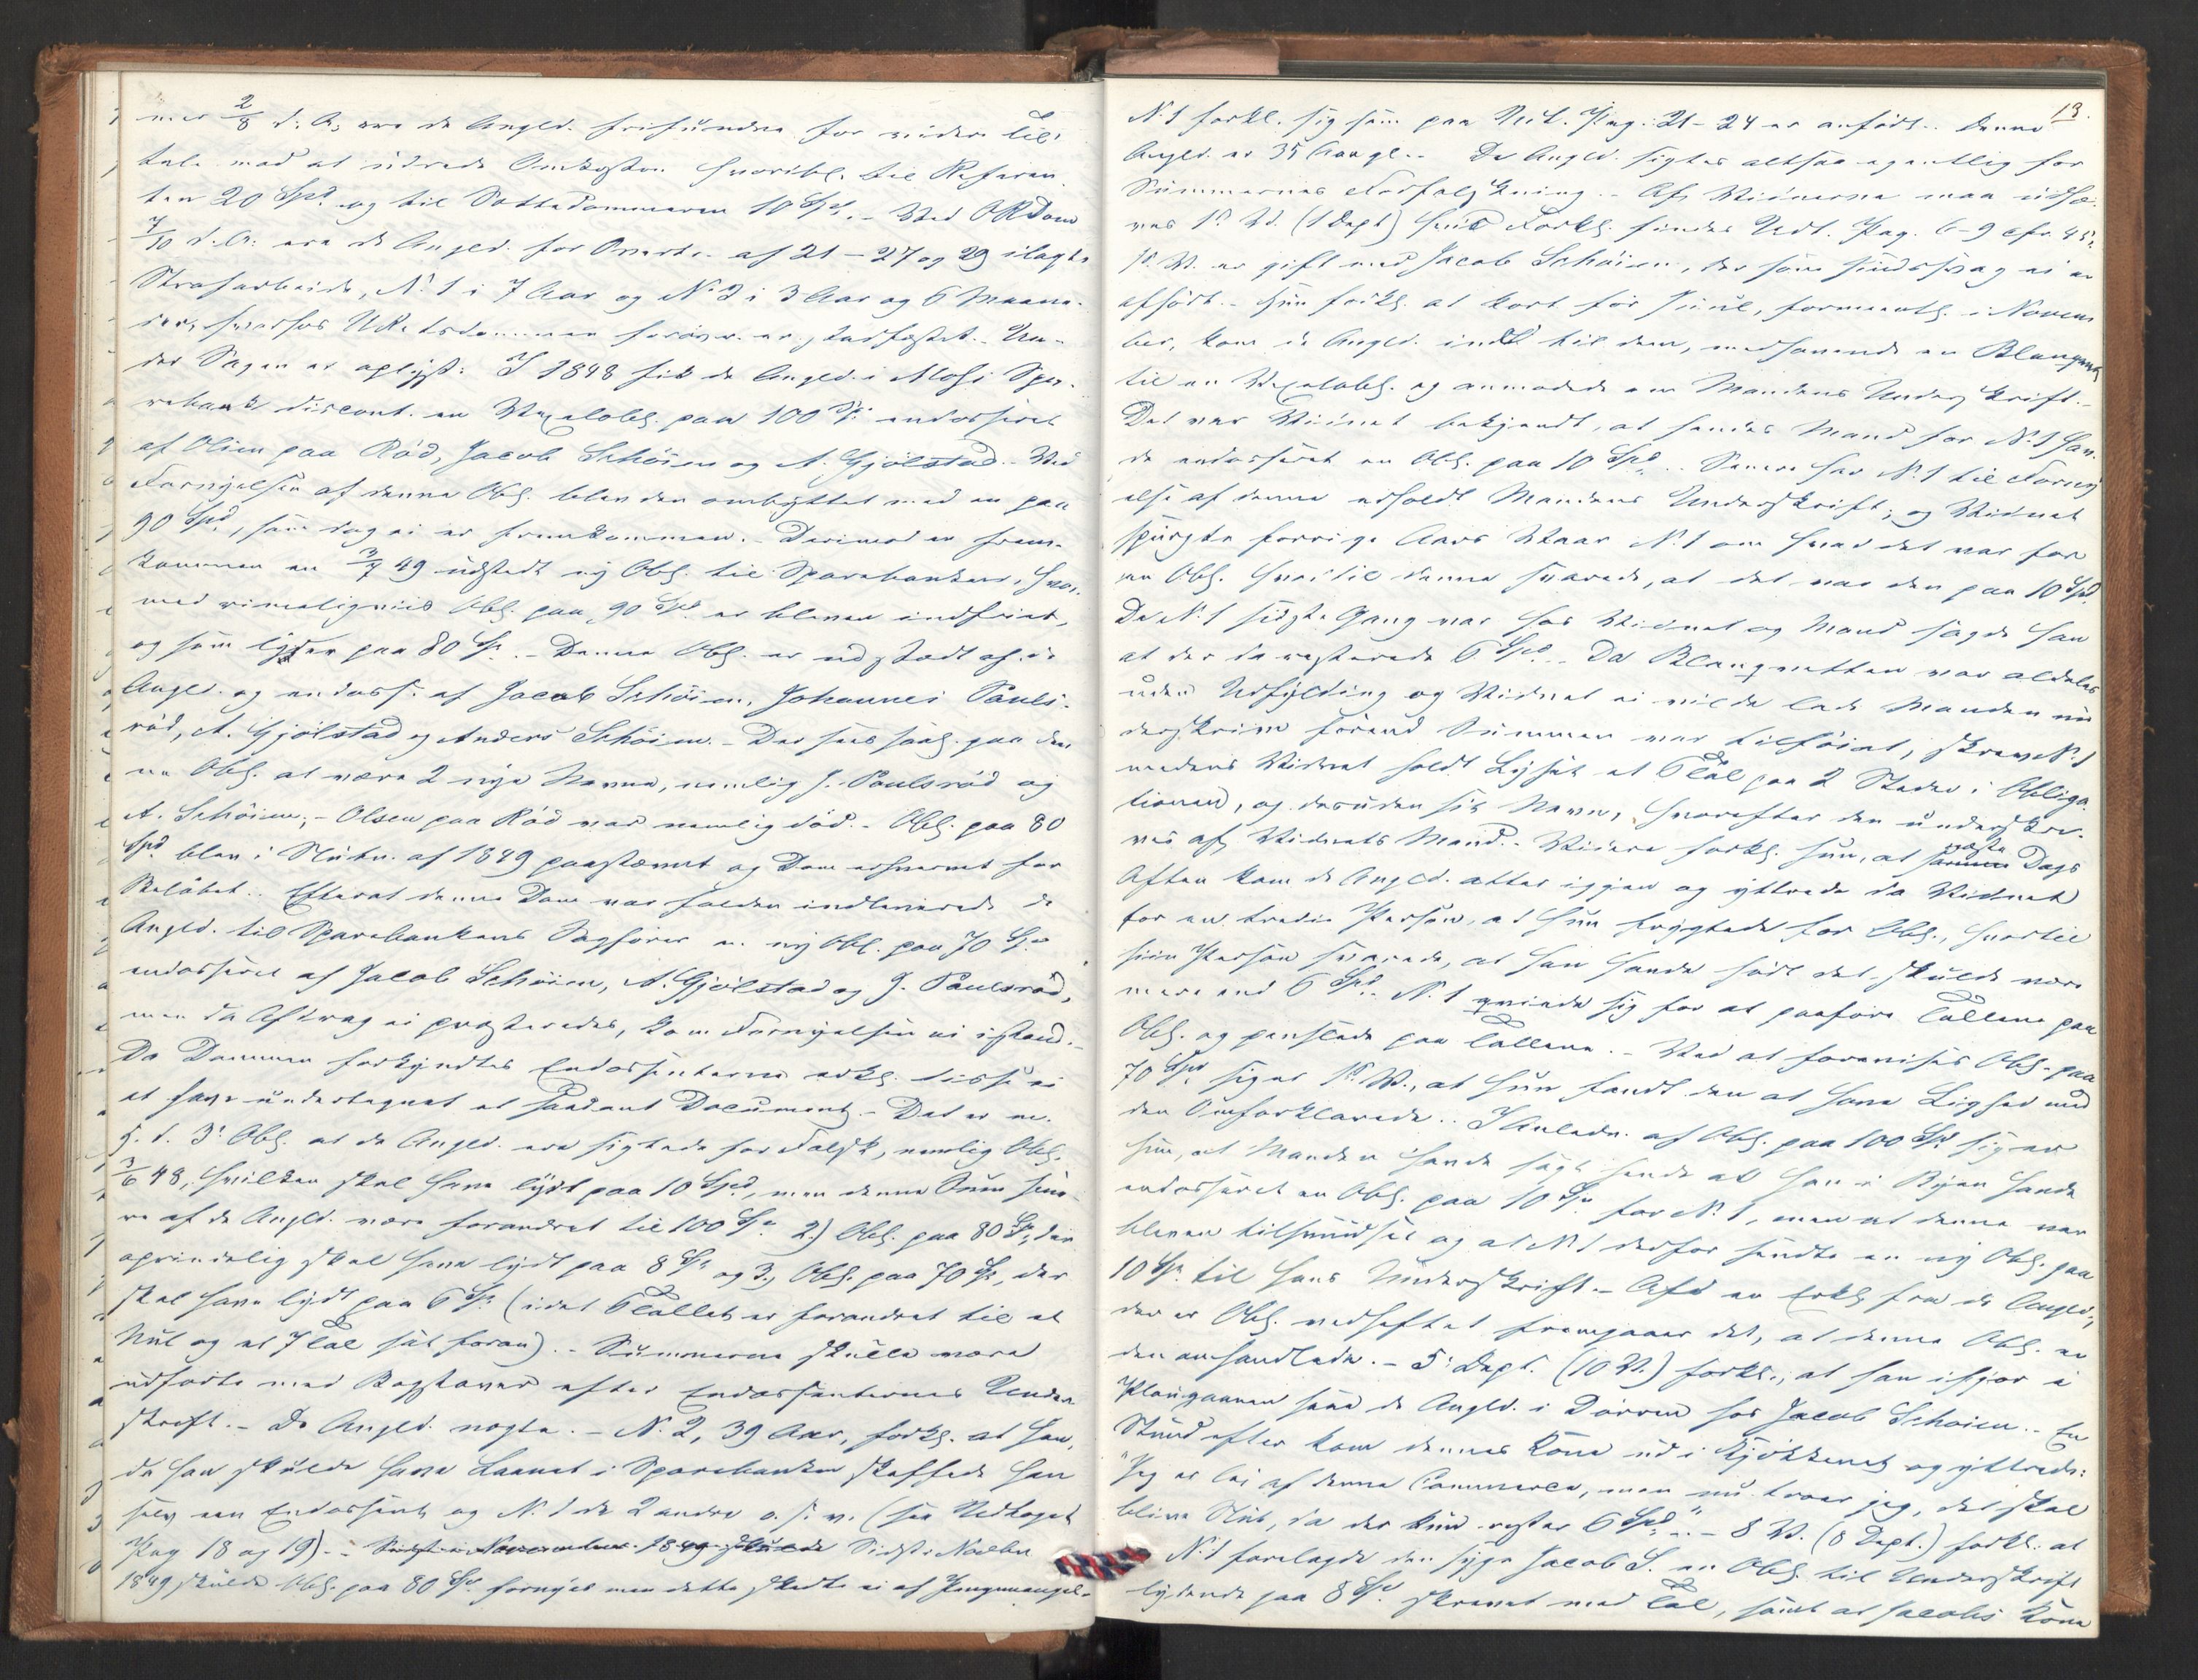 mer 2/8 d. A. ere de Angld. frifundne for videre Til-
tale mod at udrede Omkosten hvoribl. til Referen-
ten 20 Spd og til Sættedommeren 10 Spd. - Ved ORDom
7/10 d. A. ere de Angld. for Overtr. af 21-27 og 29 ilagte
Strafarbeide, N. 1 i 7 Aar og N. 2 i 3 Aar og 6 Maane-
der, hvorhos URetsdommen forøvr. er stadfæstet. - Un-
der Sagen er oplyst: I 1848 fik de Angld. i Moss Spa-
rebank discont. en Vexelobl. paa 100 Sp. endosseret
af Olsen paa Rød, Jacob Schøien og A. Gjølstad. - Ved
Fornyelsen af denne Obl. blev den ombyttet med en paa
90 Spd, som dog ei er fremkommen. - Derimod er frem-
kommen en 3/7 49 udstedt ny Obl. til Sparebanken, hvor-
med rimeligviis Obl. paa 90 Spd er bleven indfriet,
og som lyder paa 80 Sp. - Denne Obl. er udstedt af de
Angld. og endoss. af Jacob Schøien, Johannes Pauls-
rød, A. Gjølstad og Anders Schøien. - Der sees saal. paa den-
ne Obl. at være 2 nye Navne, nemlig J. Paulsrød og
A. Schøien; - Olsen paa Rød var nemlig død. - Obl. paa 80
Spd blev i Slutn. af 1849 paastævnt og Dom erhvervet for
Beløbet. - Efterat denne Dom var falden indleverede de
Angld. til Sparebankens Sagfører en ny Obl. paa 70 Sp.
endosseret af Jacob Schøien, A. Gjølstad og J. Paulsrød,
men da Afdrag ei præsteredes, kom Fornyelsen ei istand. -
Da Dommen forkyndtes Endossenterne erkl. disse ei
at have undertegnet et saadant Document. - Det er
3 Obl. at de Angld. ere sigtede for Falsk, nemlig Obl.
3/6 48, hvilken skal have lydt paa 10 Spd, men denne Sum
af de Angld. være forandret til 100 Sp. 2) Obl. paa 80 Sp, der
oprindelig skal have lydt paa 8 Sp. og 3, Obl. paa 70 Sp, der
skal have lydt paa 6 Sp. (idet 6 Tallet er forandret til et
Nul og et 7 Tal sat foran). - Summerne skulle være
udførte med Bogstaver efter Endossenternes Under-
skrift. - De Angld. nægte. - N. 2, 39 Aar, forkl. at han,
da han skulde have Laanet i Sparebanken skaffede han
selv een Endossent og N. 1 de 2 andre o. s. v. (see Udtoget
Pag 18 og 19). - Sidst i Novbr
1849 skulde Obl. paa 80 Sp. fornyes men dette skedte ei af Pengemangel. -
13.
N. 1 forkl. sig som paa Udt. Pag. 21-24 er anført. - Denne
Angld. er 35 Aar gl. - De Angld. sigtes altsaa egentlig for
Summernes Forfalskning. - Af Vidnerne maa udhæ-
ves 1st V. (1 Dept) hvis Forkl. findes Udt. Pag. 6-9 cfr. 45.
1st V. er gift med Jacob Schøien, der som sindssvag ei er
afhørt. - Hun forkl. at kort før Juul, formentl. i Novem
ber, kom de Angld. ind til dem, medhavende en Blanquet
til en Vexelobl. og anmodede om Mandens Underskrift. -
Det var Vidnet bekjendt, at hendes Mand for N. 1 hav-
de endosseret en Obl. paa 10 Spd. - Senere har N. 1 til Forny
else af denne erholdt Mandens Underskrift; og Vidnet
spurgte forrige Aars Vaar N. 1 om hvad det var for
en Obl. hvortil denne svarede, at det var den paa 10 Spd.
Da N. 1 sidste Gang var hos Vidnet og Mand sagde han
at der da resterede 6 Spd. - Da Blanquetten var aldeles
uden Udfylding og Vidnet ei vilde lade Manden un
derskrive førend Summen var tilføiet, skrev N. 1
medens Vidnet holdt Lyset et 6 Tal paa 2 Steder i Obliga-
tionen, og desuden sit Navn, hvorefter den underskre-
ves af Vidnets Mand. - Videre forkl. hun, at næste Dags
Aften kom de Angld. atter igjen og yttrede da Vidnet
for en tredie Person, at hun frygtede for Obl., hvortil
hiin Person svarede, at han havde hørt det skulde være
mere end 6 Spd. - N. 1 sig for at paaføre Tallene paa
Obl. og paa Tallene. - Ved at forevises Obl. paa
70 Spd siger 1st V., at hun fandt den at have Lighed med
den Omforklarede. - I Anledn. af Obl. paa 100 Spd siger
hun, at Manden havde sagt hende at han i Byen havde
endosseret en Obl. paa 10 Sp. for N. 1, men at denne var
bleven tilsmudset og at N. 1 derfor sendte en ny Obl. paa
10 Sp. til hans Underskrift. - Af en Erkl. fra de Angld.,
der er Obl. vedheftet fremgaaer det, at denne Obl. er
den omhandlede. - 5 Dept. (10 V.) forkl., at han ifjor i
Plougaannen saae de Angld. i Dørren hos Jacob Schøien. - En
Stund efter kom dennes Kone ud i Kjøkkenet og yttrede:
"Jeg er lei af denne Commerce, men nu troer jeg, det skal
blive Slut, da der kun rester 6 Spd". - 8 V. (8 Dept.) forkl. at
N. 1 forelagde den syge Jacob S. en Obl. til Underskrift
lydende paa 8 Spd. skrevet med Tal, samt at Jacobs Kone